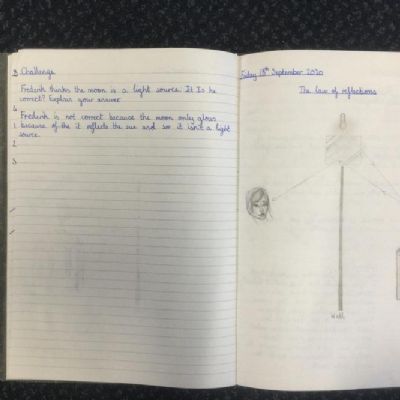 3 Challenge
Fredrik thinks the moon is a light source. It Is he
correct? Explain your answer
4
Fredrik is not correct because the moon only glows
1 because of the it reflects the sun and so it isn't a light
source.
2
3
Friday 18th September 2020
The law of reflections
Wall